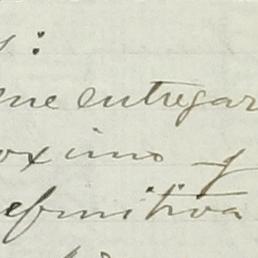 s:
ene entregar
oximo y
efinitiva